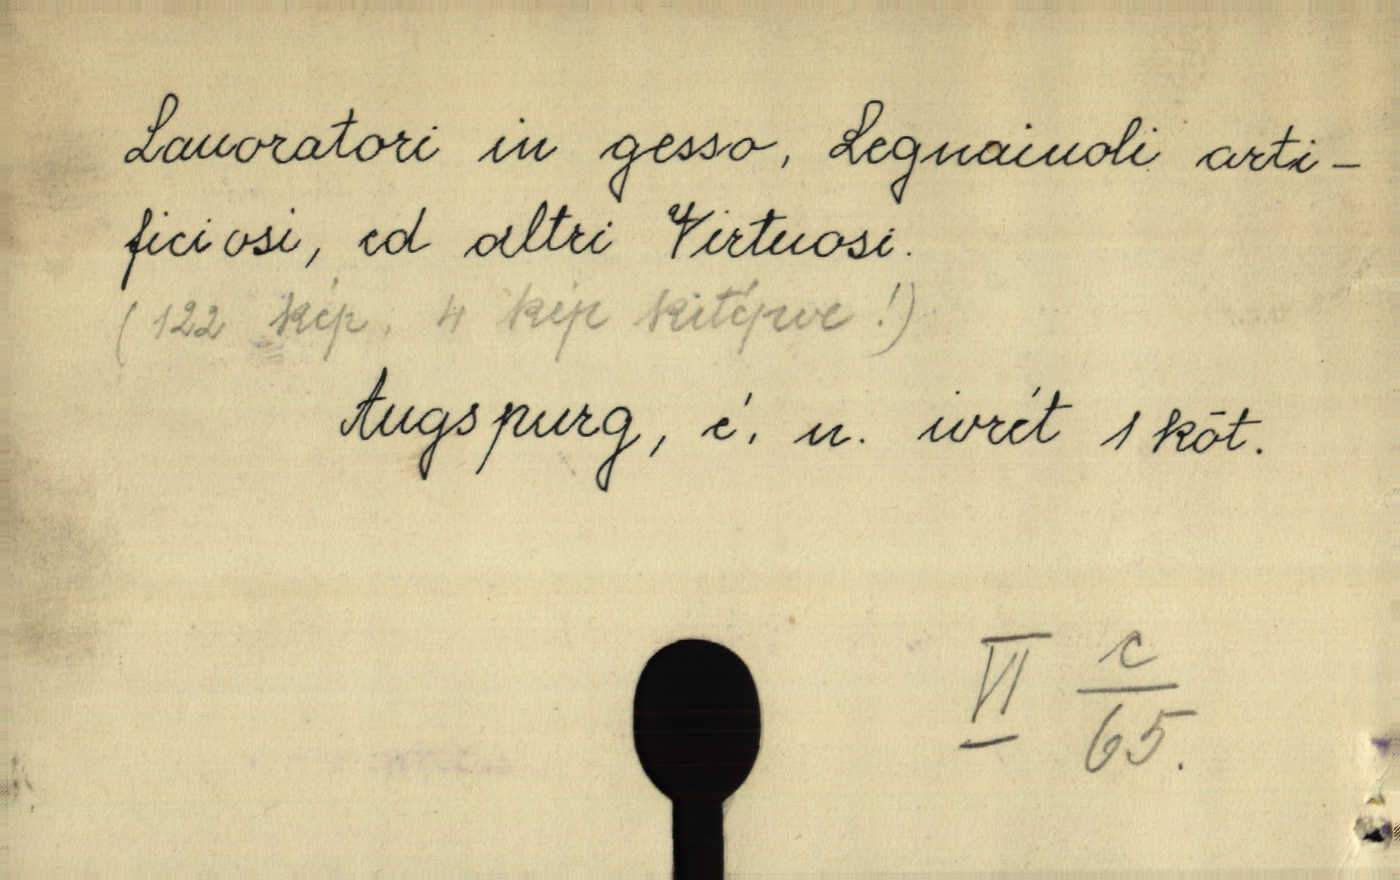 Lauoratori in gesso, Legnaiuoli arti-
ficiosi, ed altri Virtuosi.
(122 kép, 4 kép kitépve!)
Augspurg, é. n. ivrét 1 köt.
VI c/65.